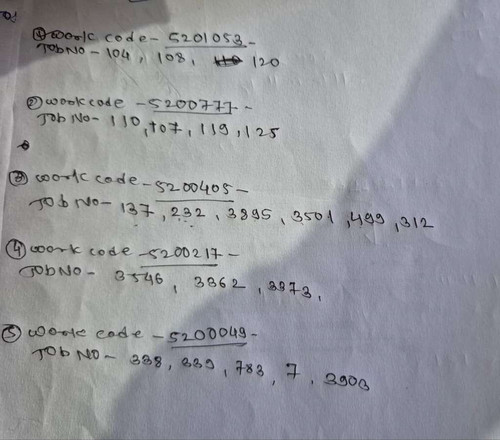 ① Work code - 5201053 -
Job No - 104, 108, 120
② Work code - 5200777 -
Job No - 110, 107, 119, 125
③ Work code - 5200405 -
Job No - 137, 232, 3895, 3501, 499, 312
④ Work code - 5200217 -
Job No - 3546, 3362, 3373,
⑤ Work code - 5200049 -
Job No - 338, 339, 783, 7, 3903